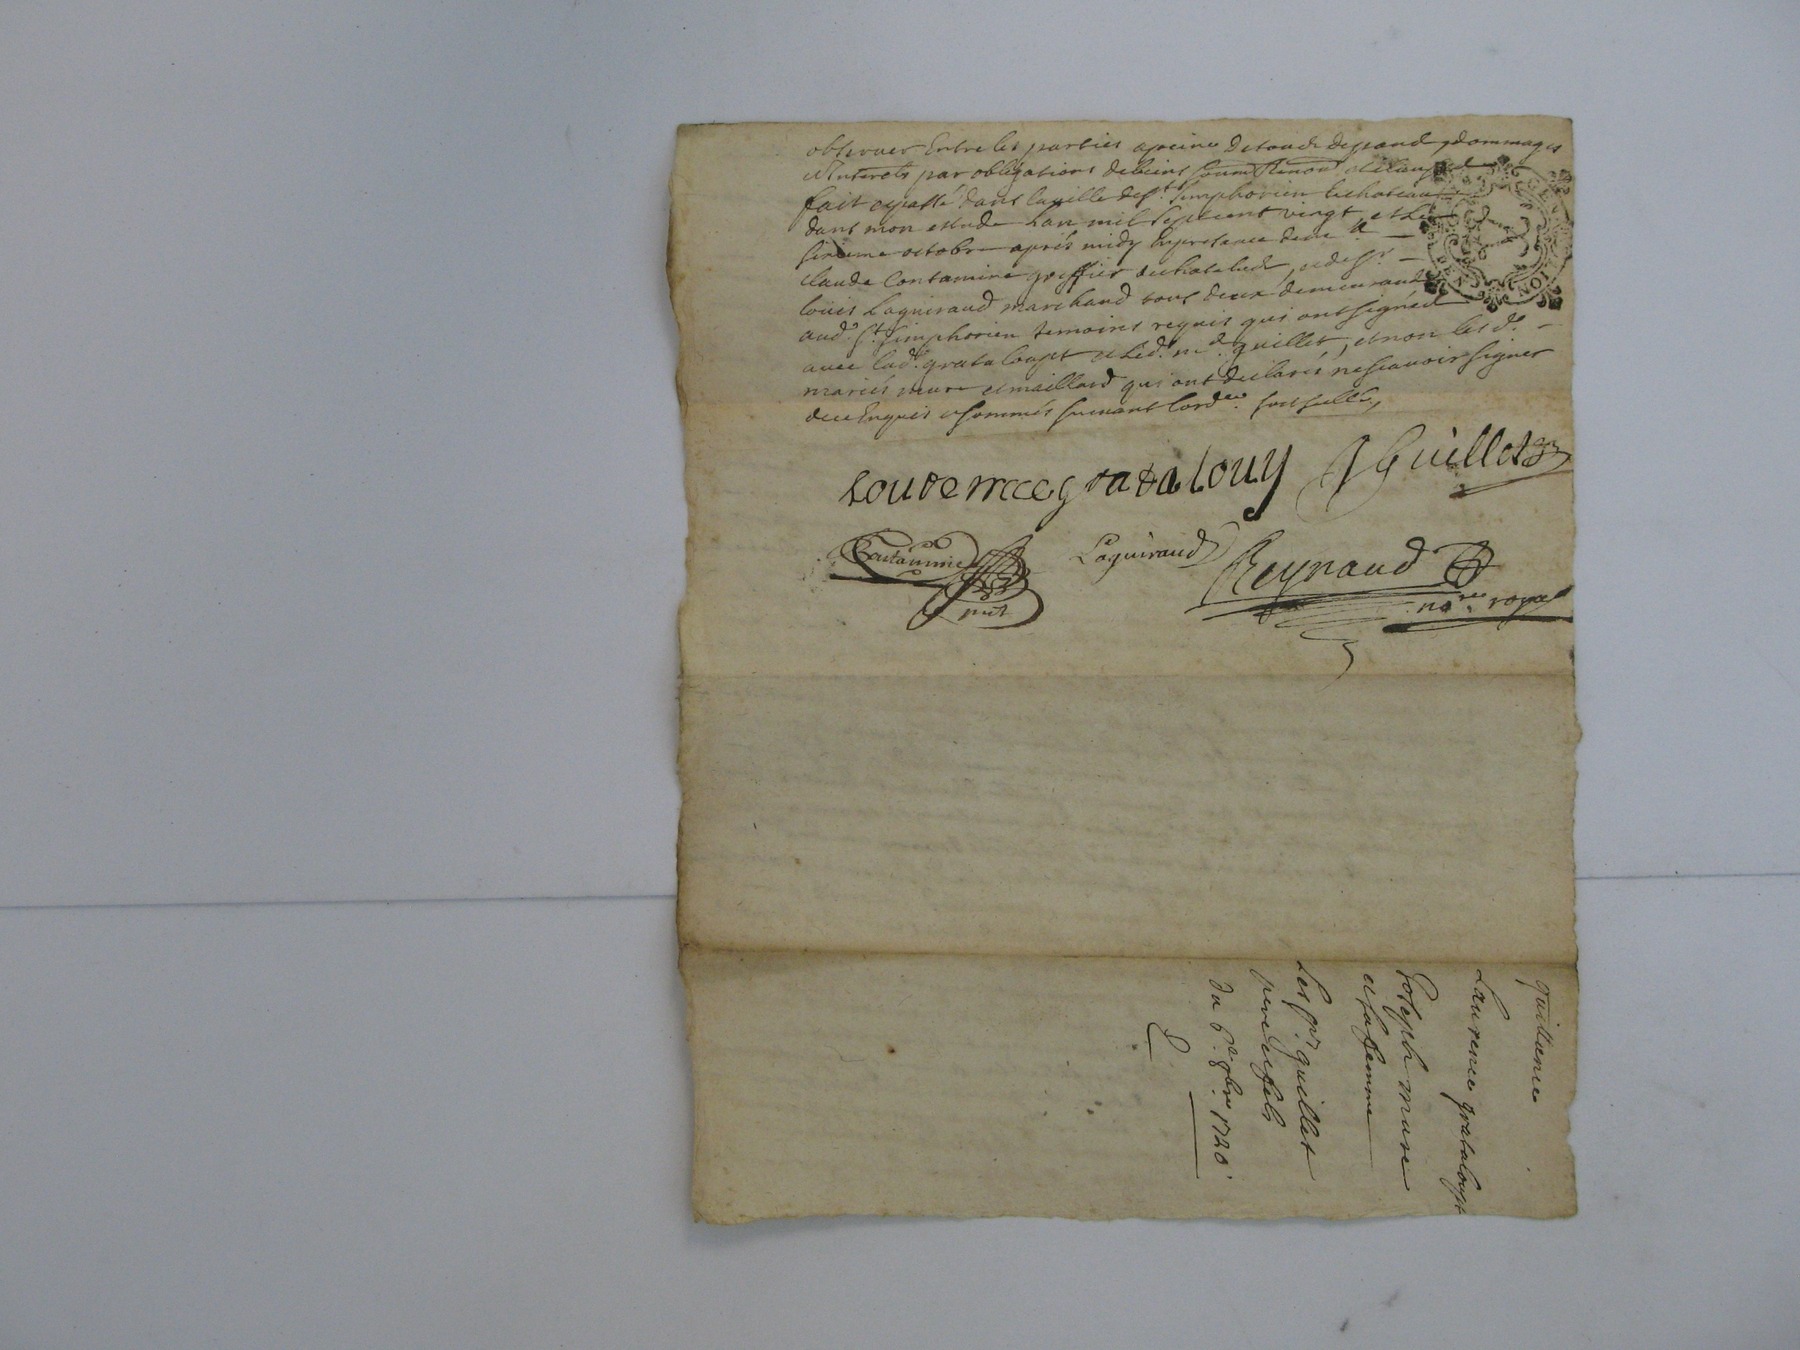 observer Entre les parties apeine de tous despand, dommages
et Interets par obligations de biens soum. Renon. et clauses
fait et passé dans la ville de St. Simphorien le chateau
dans mon estude Lan mil sept cent vingt, et Le
sixieme octobre après midy En presence de me
claude Contamine greffier et de sr. —
louis Laguiraud marchand tous deux demeurants
aud. St. Simphorien temoins requis qui ont signés
avec lad. grataloupt et Led. guillet, et non les d. —
mariés mure et maillard qui ont declarés ne scavoir signer
de ce Enquis et sommés suivant lord.ce
grataloup Guillet
Contamine
Laguiraud Reynaud
no.re royal
quittance
Laurence grataloupt
Joseph mure
et sa femme
Les srs. guillet
pere et fils
du 6e. 8bre 1720